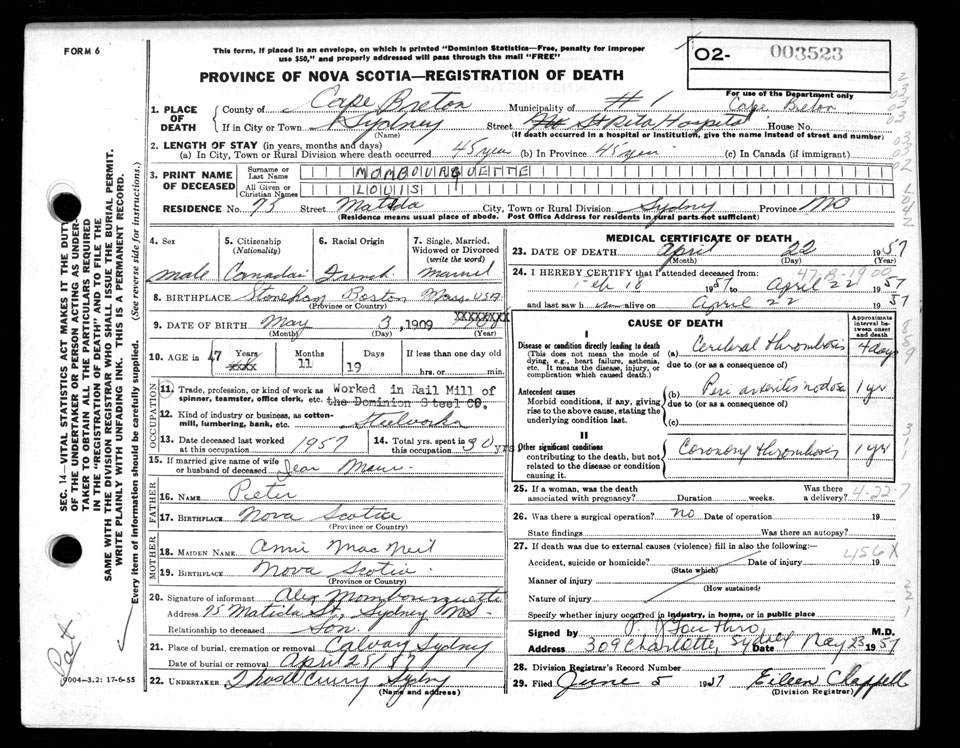 FORM 6
This form, if placed in an envelope, on which is printed "Dominion Statistics—Free, penalty for improper
use $50," and properly addressed will pass through the mail "FREE"
PROVINCE OF NOVA SCOTIA—REGISTRATION OF DEATH
O2- 003523
For use of the Department only
1. PLACE OF DEATH
County of Cape Breton Municipality of #1 Cape Breton
If in City or Town Sydney Street St Rita Hospital House No.
(Name) (If death occurred in a hospital or institution, give the name instead of street and number)
2. LENGTH OF STAY (in years, months and days)
(a) In City, Town or Rural Division where death occurred 45 year (b) In Province 45 year (c) In Canada (if immigrant)
3. PRINT NAME OF DECEASED
Surname or Last Name MOMBOURQUETTE
All Given or Christian Names LOUIS
RESIDENCE No. 75 Street Matilda City, Town or Rural Division Sydney Province NS
(Residence means usual place of abode. Post Office Address for residents in rural parts not sufficient)
4. Sex
male
5. Citizenship (Nationality)
Canadian
6. Racial Origin
French
7. Single, Married, Widowed or Divorced (write the word)
Married
8. BIRTHPLACE Stoneham Boston Mass. USA
(Province or Country)
9. DATE OF BIRTH May 3, 1909 XXXXXXXX
(Month) (Day) (Year)
10. AGE in 47 Years 11 Months 19 Days If less than one day old
hrs. or min.
OCCUPATION
11 Trade, profession, or kind of work as spinner, teamster, office clerk, etc. Worked in Rail Mill of the Dominion Steel CO.
12. Kind of industry or business, as cotton-mill, lumbering, bank, etc. Steelworker
13. Date deceased last worked at this occupation 1957 14. Total yrs. spent in this occupation 30 yrs
15. If married give name of wife or husband of deceased Jean
FATHER
16. NAME Pieter
17. BIRTHPLACE Nova Scotia
(Province or Country)
MOTHER
18. MAIDEN NAME Annie MacNeil
19. BIRTHPLACE Nova Scotia
(Province or Country)
20. Signature of informant Alex Mombourquette
Address 75 Matilda St, Sydney NS
Relationship to deceased Son.
21. Place of burial, cremation or removal Calvary Sydney
Date of burial or removal April 25/57
22. UNDERTAKER Thos Curry Sydney
(Name and address)
MEDICAL CERTIFICATE OF DEATH
23. DATE OF DEATH April 22 1957
(Month) (Day) (Year)
47-B-1900
24. I HEREBY CERTIFY that I attended deceased from:
Feb 18 1957 to April 22 1957
and last saw him alive on April 22 1957
CAUSE OF DEATH
Approximate interval between onset and death
I
Disease or condition directly leading to death
(This does not mean the mode of dying, e.g., heart failure, asthenia, etc. It means the disease, injury, or complication which caused death.)
(a) Cerebral Thrombosis 4 days
due to (or as a consequence of)
Antecedent causes
Morbid conditions, if any, giving rise to the above cause, stating the underlying condition last.
(b) Peri arteritis nodosa 1 yr
due to (or as a consequence of)
(c)
II
Other significant conditions
contributing to the death, but not related to the disease or condition causing it.
Coronary thrombosis 1 yr
25. If a woman, was the death associated with pregnancy? Duration weeks. Was there a delivery? 4-22-7
26. Was there a surgical operation? no Date of operation 19
State findings Was there an autopsy?
27. If death was due to external causes (violence) fill in also the following:—
Accident, suicide or homicide? Date of injury 19
(State which)
456X
Manner of injury
(How sustained)
Nature of injury
Specify whether injury occurred in industry, in home, or in public place
Signed by M.D.
309 Charlotte, Sydney Date May 23 1957
28. Division Registrar's Record Number
29. Filed June 5 1957 Eileen Chappell
(Division Registrar)
SEC. 14—VITAL STATISTICS ACT MAKES IT THE DUTY
OF THE UNDERTAKER OR PERSON ACTING AS UNDER-
TAKER TO OBTAIN ALL THE PARTICULARS REQUIRED
IN THE "REGISTRATION OF DEATH" AND TO FILE THE
SAME WITH THE DIVISION REGISTRAR WHO SHALL ISSUE THE BURIAL PERMIT.
WRITE PLAINLY WITH UNFADING INK. THIS IS A PERMANENT RECORD.
Every item of information should be carefully supplied. (See reverse side for instructions.)
Pat
9004—3.2: 17-6-55